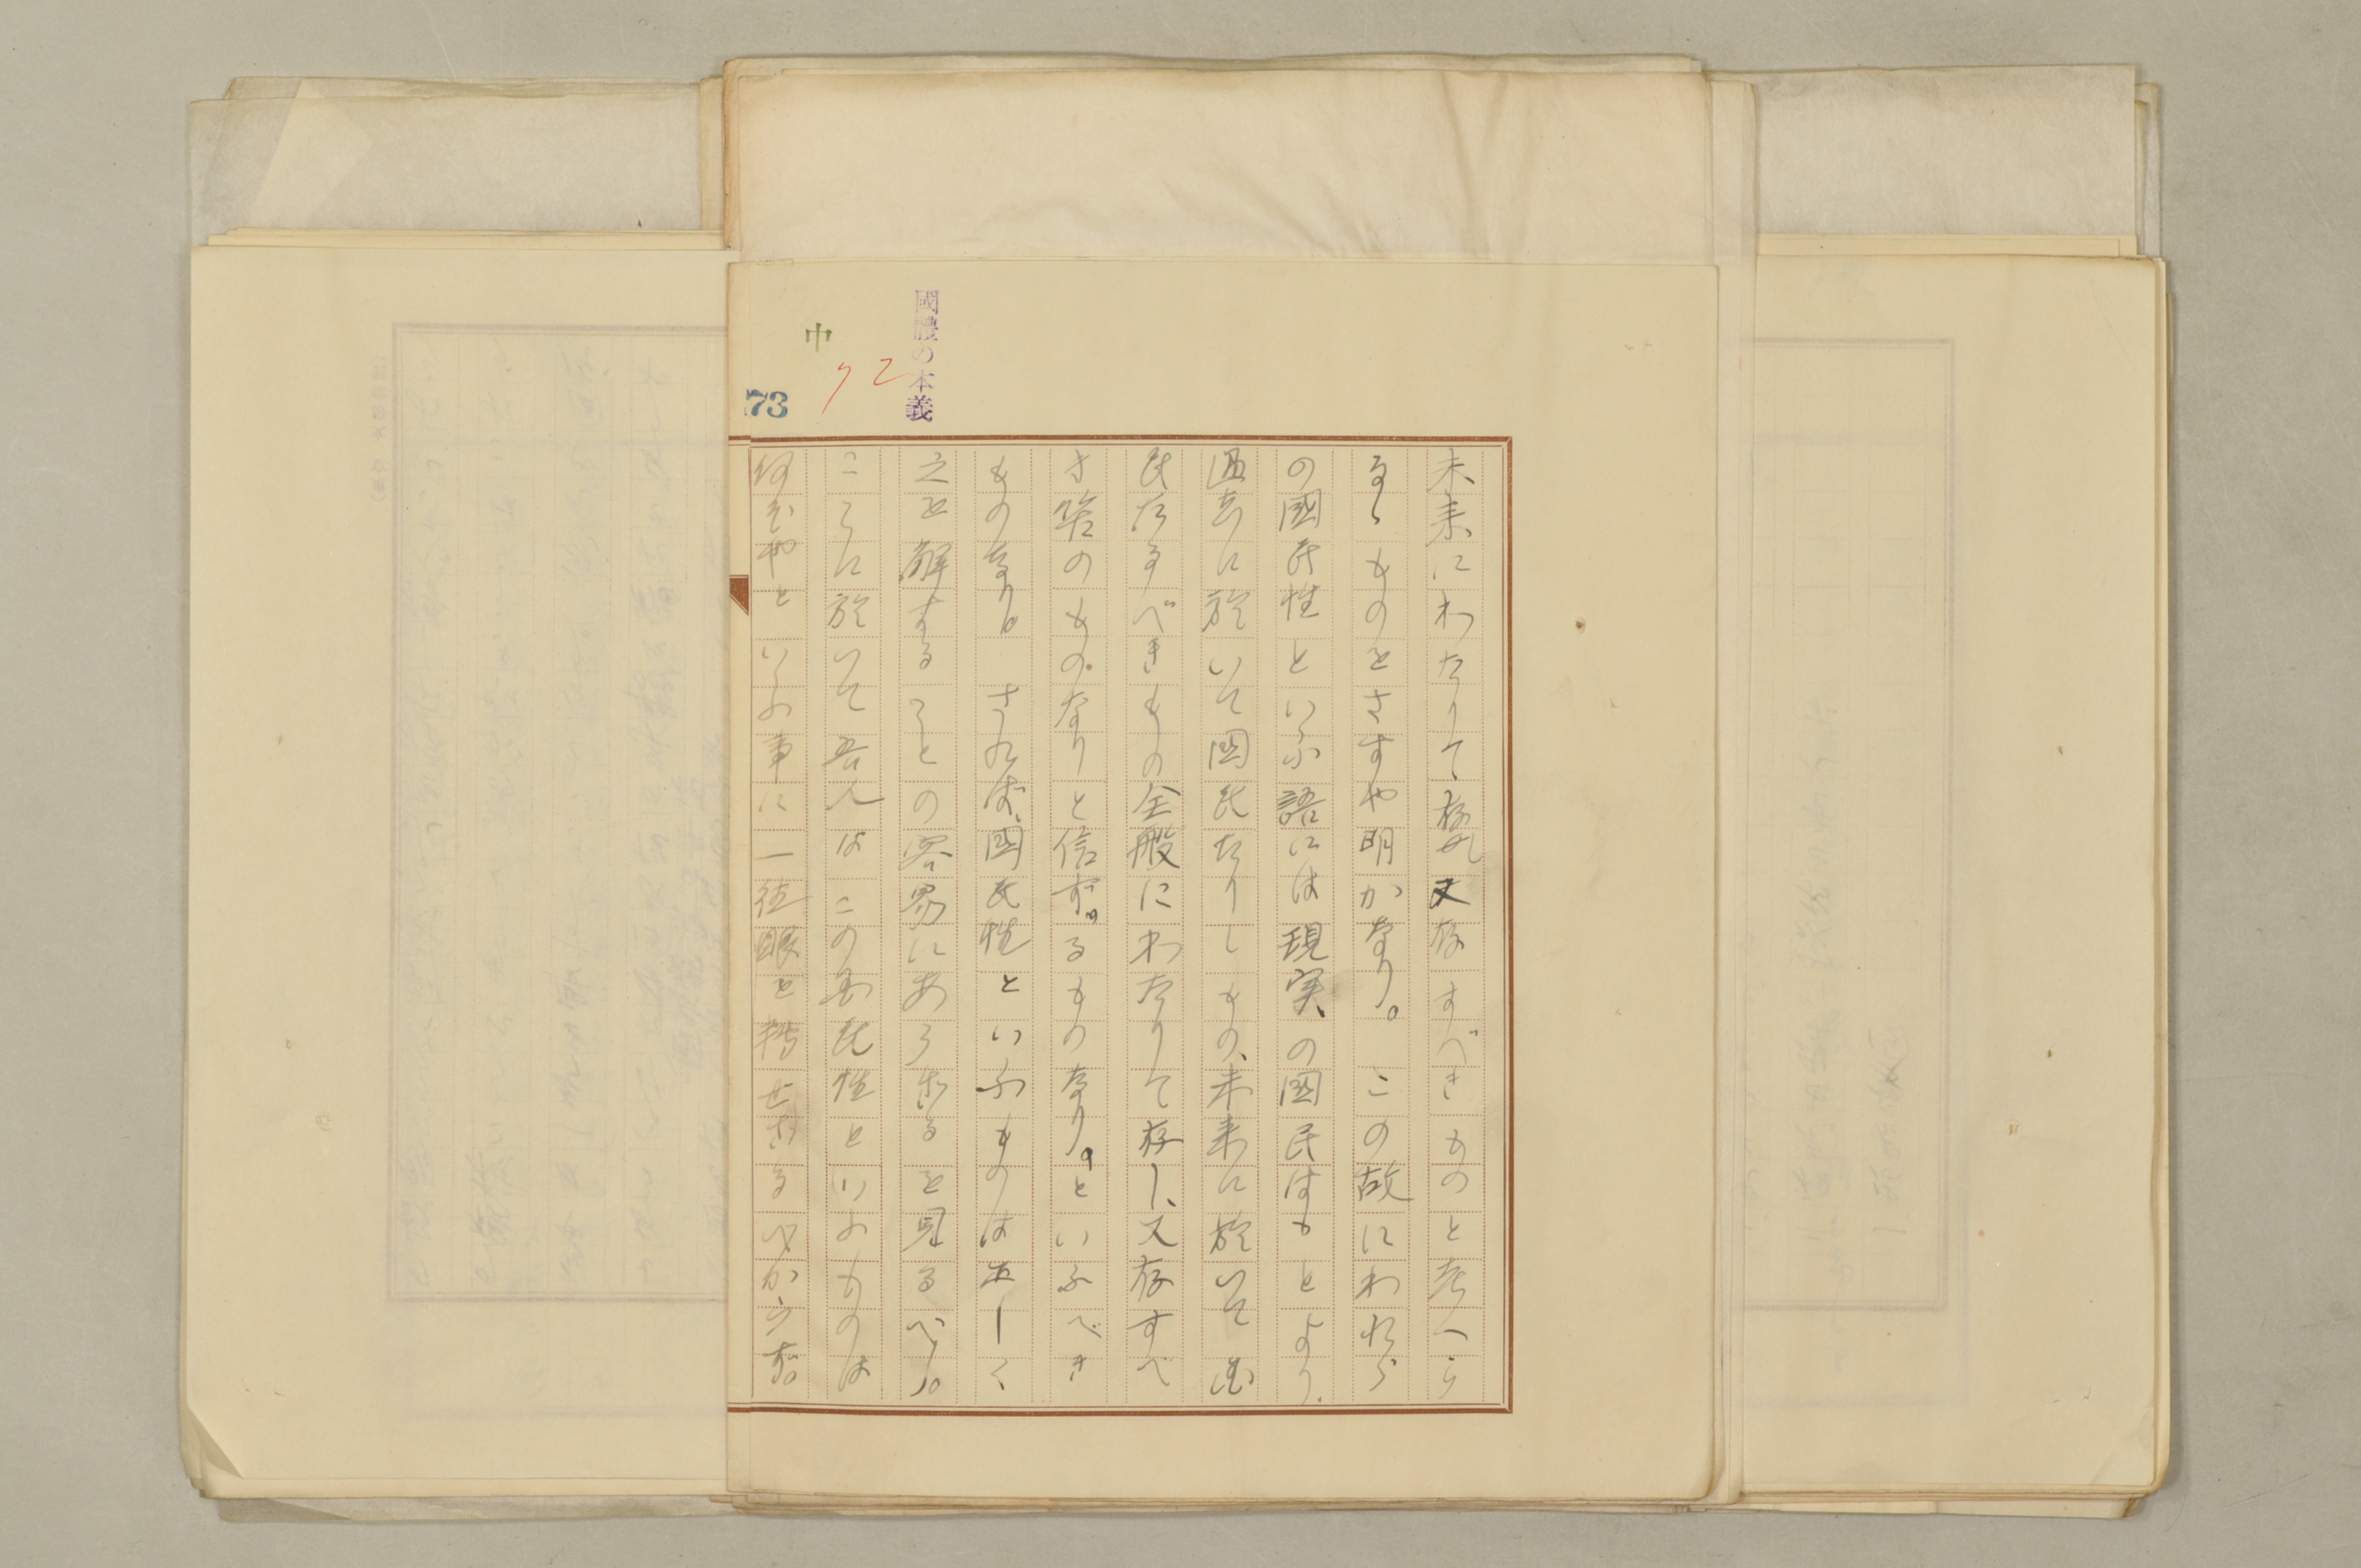 國體の本義
中
72
73
未来にわたりて存し又存すべきものと考へら
るゝものをさすや明かなり。この故にわれら
の國民性といふ語には現実の國民はもとより、
過去に於いて國民たりしもの、未来に於いて國
民たるべきもの全般にわたりて存し、又存すべ
き筈のものなりと信ずるものなりといふべき
ものなり。されば國民性といふものは正しく
之を解することの容易にあらざるを見るべし。
こゝに於いて吾人はこの國民性といふものは
何ぞやといふ事に一往眼を轉せざるべからず。